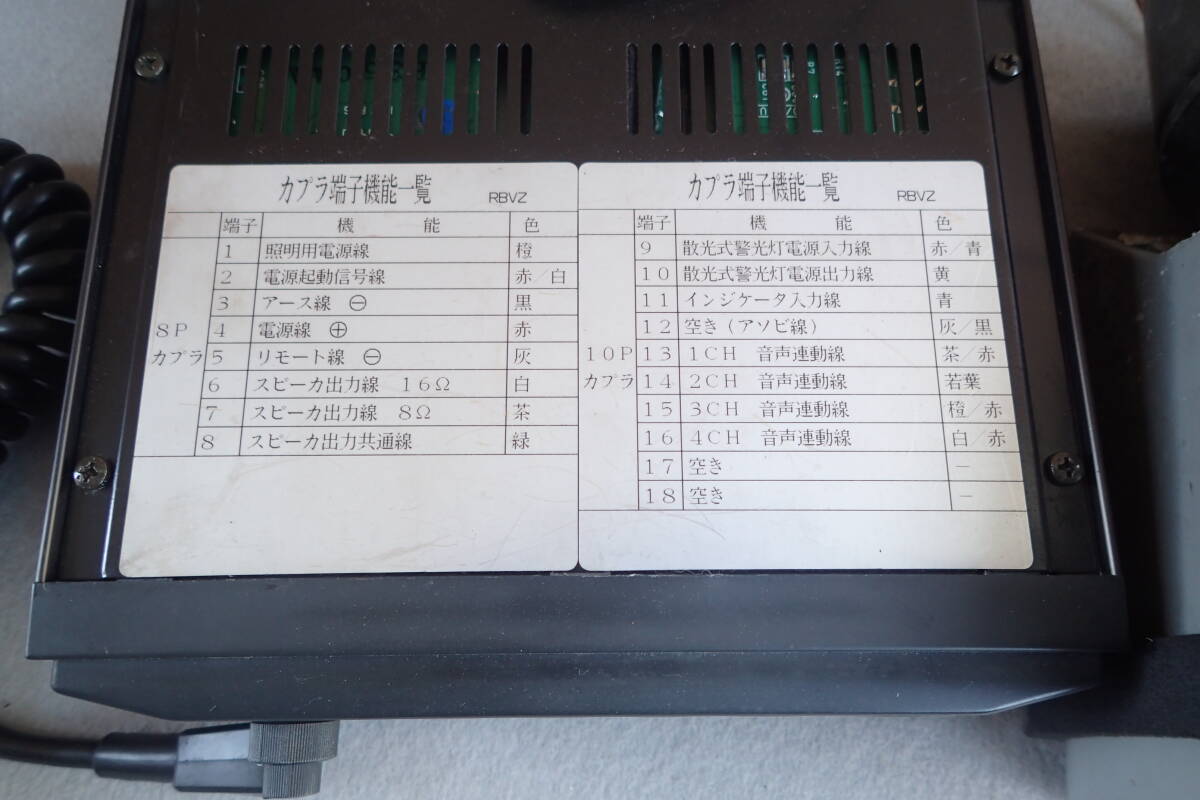 カプラ端子機能一覧 RBVZ
端子 機 能 色
1 照明用電源線 橙
2 電源起動信号線 赤／白
3 アース線 ⊖ 黒
8P 4 電源線 ⊕ 赤
カプラ 5 リモート線 ⊖ 灰
6 スピーカ出力線 16Ω 白
7 スピーカ出力線 8Ω 茶
8 スピーカ出力共通線 緑
カプラ端子機能一覧 RBVZ
端子 機 能 色
9 散光式警光灯電源入力線 赤／青
10 散光式警光灯電源出力線 黄
11 インジケータ入力線 青
12 空き（アソビ線） 灰／黒
10P 13 1CH 音声連動線 茶／赤
カプラ 14 2CH 音声連動線 若葉
15 3CH 音声連動線 橙／赤
16 4CH 音声連動線 白／赤
17 空き －
18 空き －